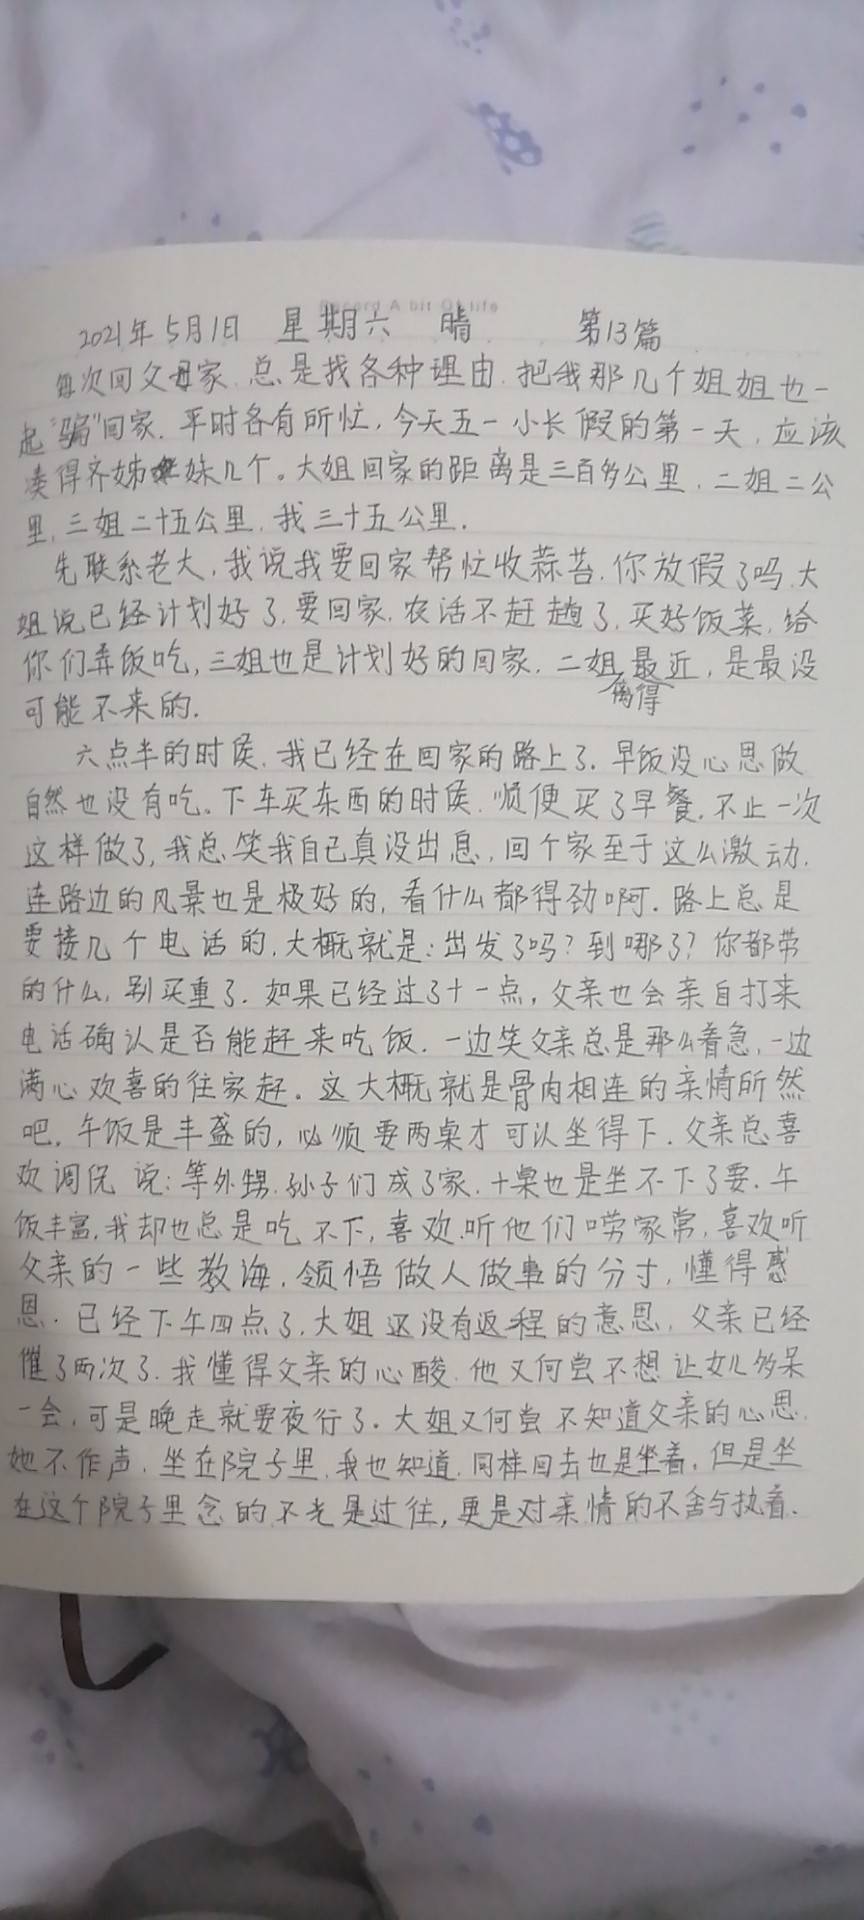 Record A bit Of life
2021年5月1日 星期六 晴 第13篇
每次回父母家.总是找各种理由.把我那几个姐姐也一
起"骗"回家.平时各有所忙,今天五一小长假的第一天,应该
凑得齐姊妹几个。大姐回家的距离是三百多公里.二姐二公
里,三姐二十五公里.我三十五公里.
先联系老大,我说我要回家帮忙收蒜苔.你放假了吗.大
姐说已经计划好了.要回家.农话不赶趟了.买好饭菜.给
你们弄饭吃,三姐也是计划好的回家.二姐离得最近,是最没
可能不来的.
六点半的时侯.我已经在回家的路上了.早饭没心思做
自然也没有吃。下车买东西的时侯.顺便买了早餐.不止一次
这样做了,我总笑我自己真没出息,回个家至于这么激动.
连路边的风景也是极好的,看什么都得劲啊.路上总是
要接几个电话的,大概就是:出发了吗?到哪了?你都带
的什么,别买重了.如果已经过了十一点,父亲也会亲自打来
电话确认是否能赶来吃饭.一边笑父亲总是那么着急,一边
满心欢喜的往家赶.这大概就是骨肉相连的亲情所然
吧.午饭是丰盛的,必须要两桌才可以坐得下.父亲总喜
欢调侃 说:等外甥.孙子们成了家.十桌也是坐不下了要.午
饭丰富,我却也总是吃不下,喜欢听他们唠家常,喜欢听
父亲的一些教海,领悟做人做事的分寸,懂得感
恩.已经下午四点了,大姐还没有返程的意思,父亲已经
催了两次了.我懂得父亲的心酸.他又何尝不想让女儿多呆
一会,可是晚走就要夜行了.大姐又何尝不知道父亲的心思.
她不作声.坐在院子里.我也知道.同样回去也是坐着,但是坐
在这个院子里念的不光是过往,更是对亲情的不舍与执着.